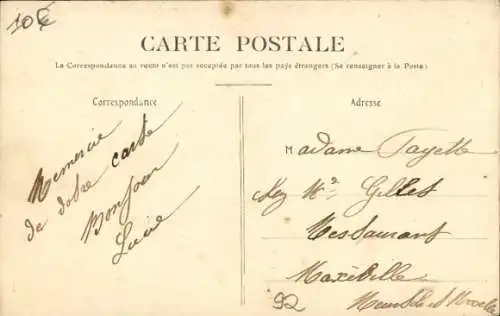 10€
CARTE POSTALE
La Correspondance au recto n'est pas acceptée par tous les pays étrangers (Se renseigner à la Poste)
Correspondance
Remercie
de votre carte
Bonjour
Lucie
Adresse
Madame Fayette
Mr Gillet
Restaurant
Maxéville
Meurthe et Moselle
92